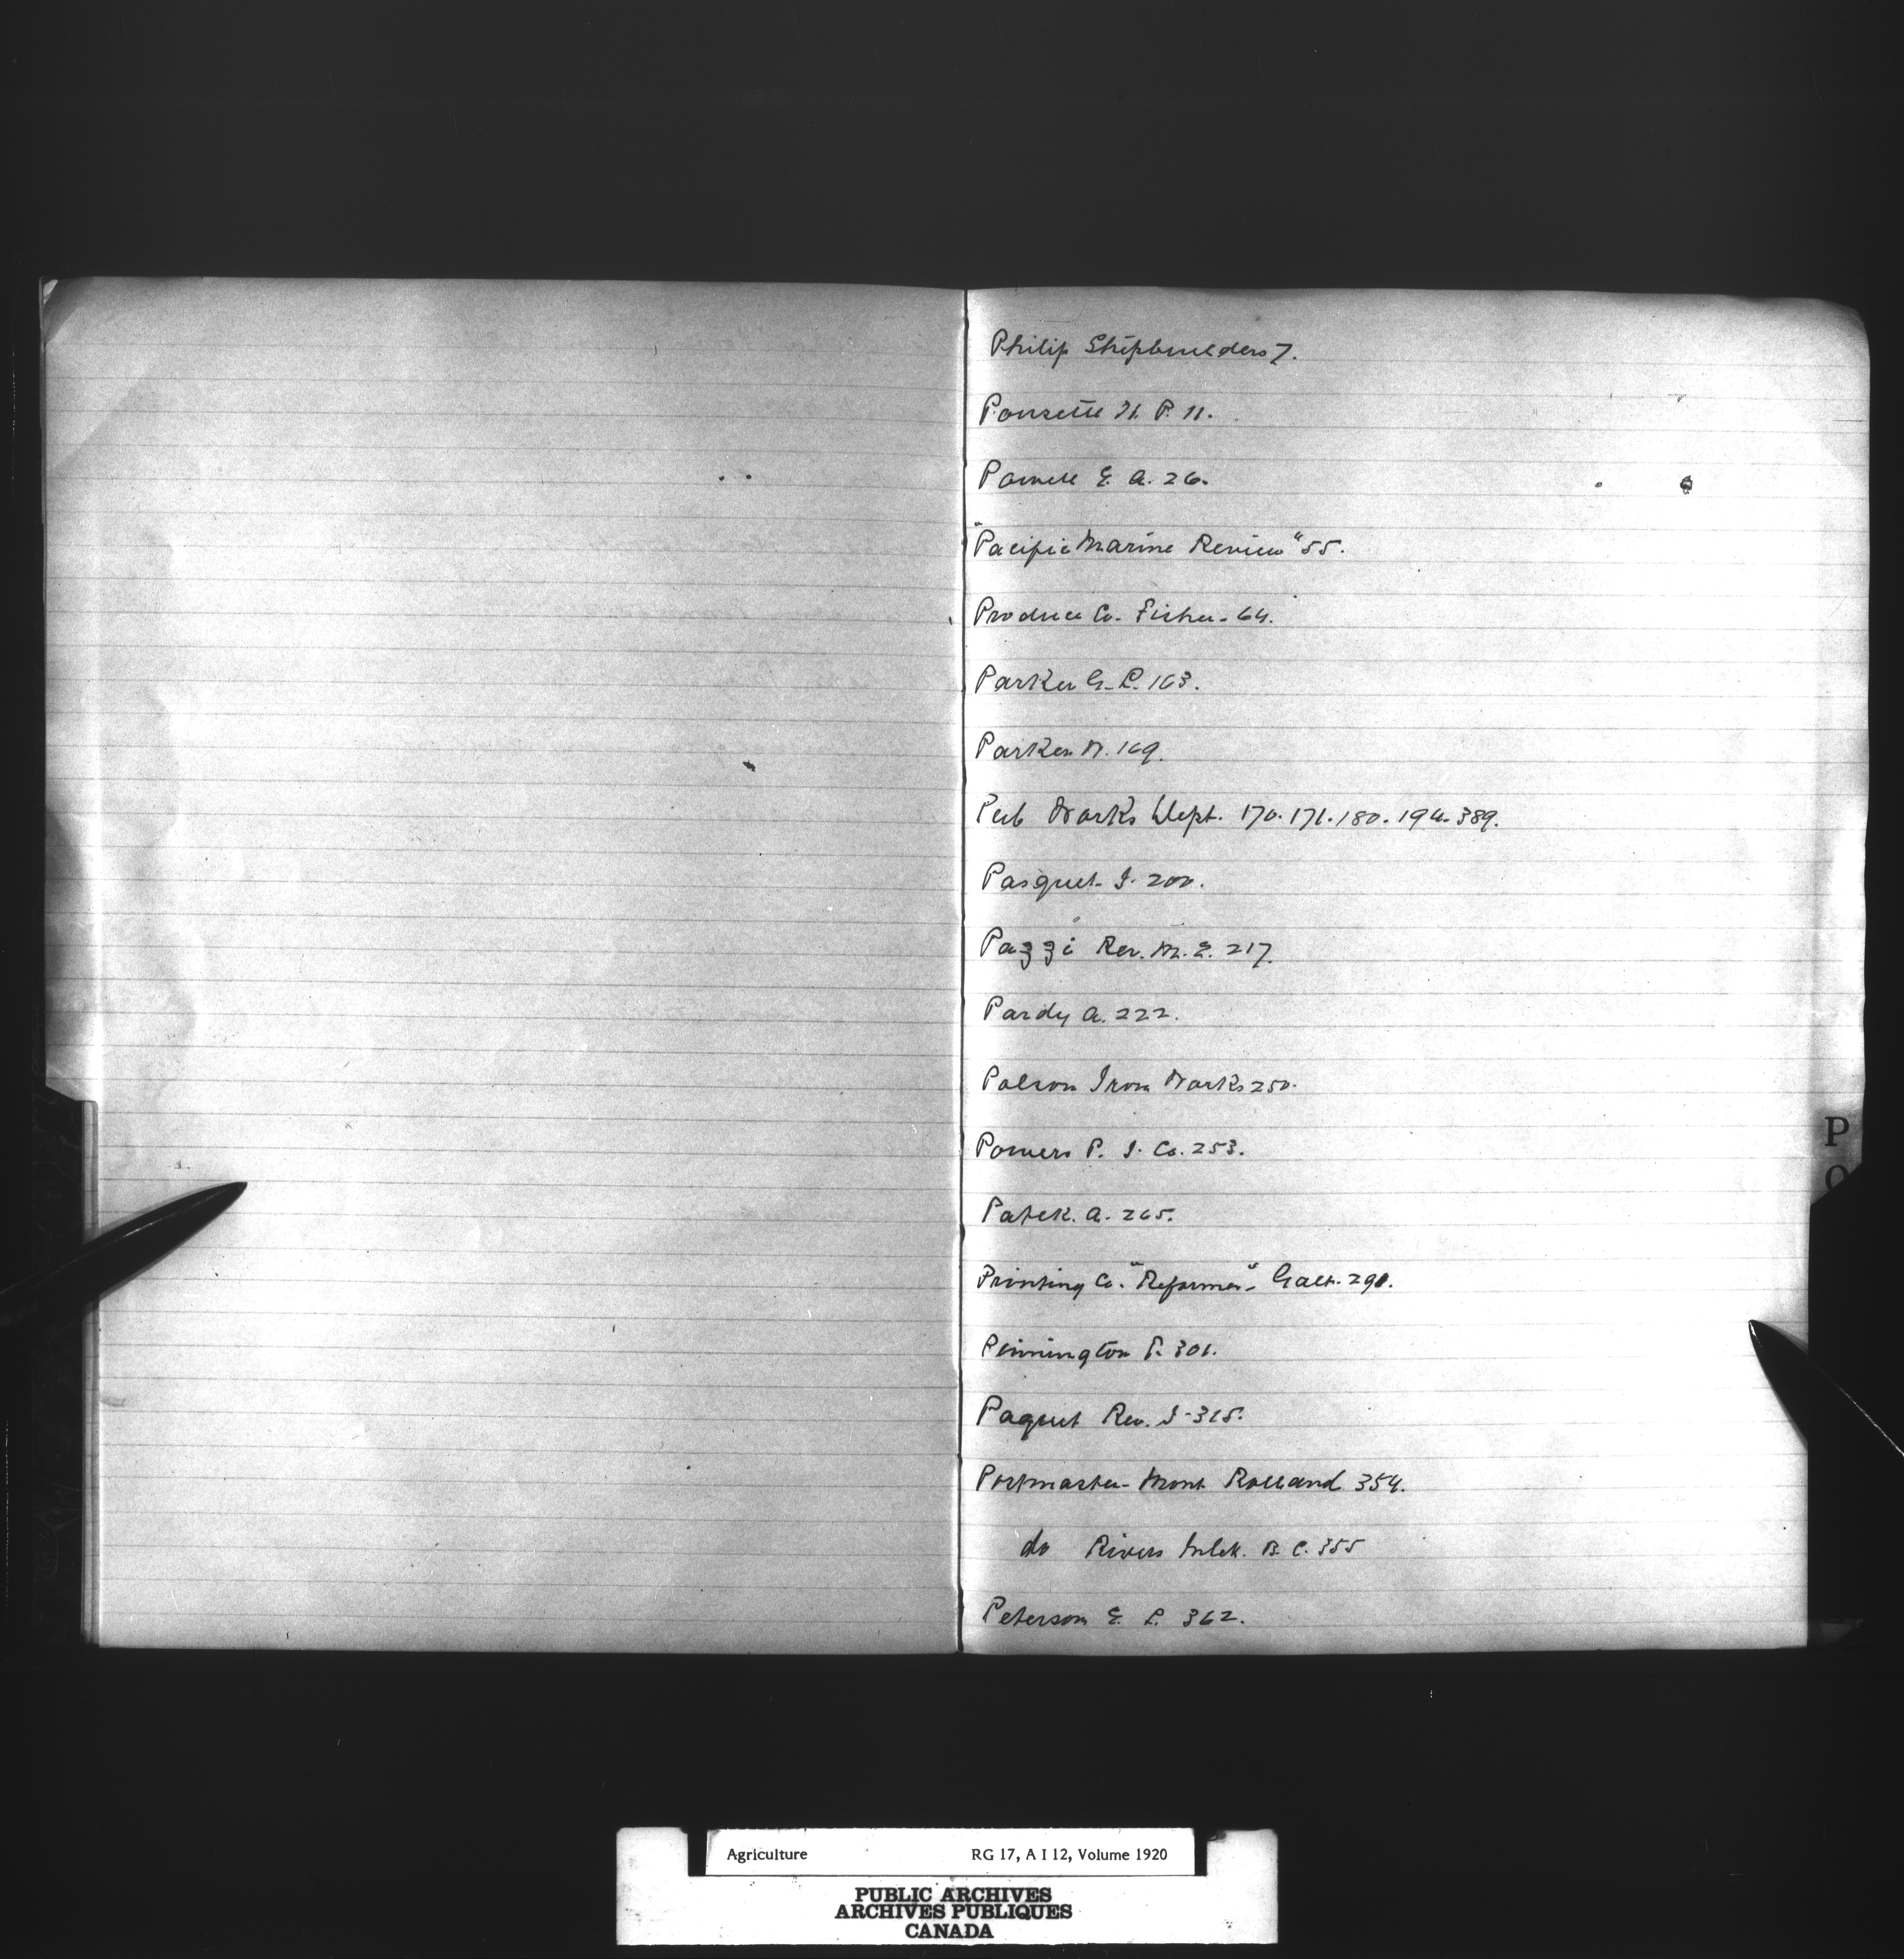 Philip Shipbuilders 7.
Ponsette H. P. 11.
Powell E. A. 26.
"Pacific Marine Review" 55.
Produce Co. Fisher. 64.
Parker G. P. 163.
Parker W. 169.
Pub Works Dept. 170. 171. 180. 194. 389.
Pasquet J. 200.
Pazzi Rev. M. E. 217.
Pardy A. 222.
Polson Iron Works 250.
Powers P. J. Co. 253.
Patek. A. 265.
Printing Co. "Reformer" Galt. 291.
Pinnington P. 301.
Paquet Rev. J. 315.
Postmaster - Mont Rolland 354.
do Rivers Inlet. B. C. 355
Peterson E. P. 362.
P
Agriculture RG 17, A I 12, Volume 1920
PUBLIC ARCHIVES
ARCHIVES PUBLIQUES
CANADA